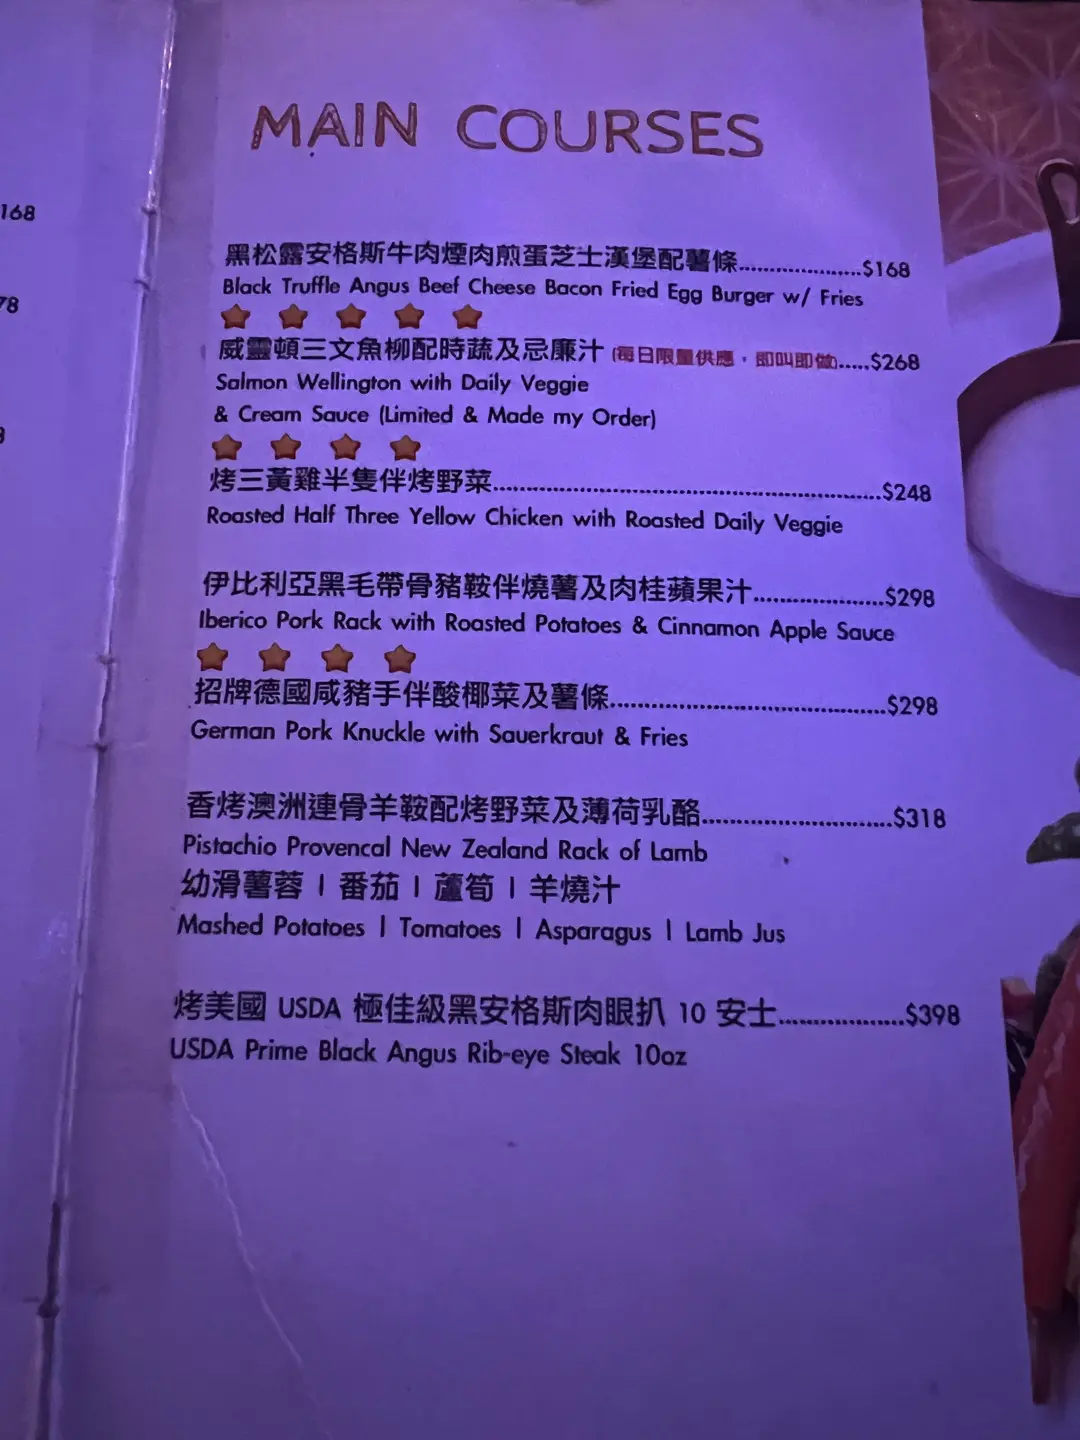 168
78
MAIN COURSES
黑松露安格斯牛肉煙肉煎蛋芝士漢堡配薯條....................$168
Black Truffle Angus Beef Cheese Bacon Fried Egg Burger w/ Fries
威靈頓三文魚柳配時蔬及忌廉汁 (每日限量供應，即叫即做).....$268
Salmon Wellington with Daily Veggie
& Cream Sauce (Limited & Made my Order)
烤三黃雞半隻伴烤野菜................................................................$248
Roasted Half Three Yellow Chicken with Roasted Daily Veggie
伊比利亞黑毛帶骨豬鞍伴燒薯及肉桂蘋果汁.....................$298
Iberico Pork Rack with Roasted Potatoes & Cinnamon Apple Sauce
招牌德國咸豬手伴酸椰菜及薯條............................................$298
German Pork Knuckle with Sauerkraut & Fries
香烤澳洲連骨羊鞍配烤野菜及薄荷乳酪..............................$318
Pistachio Provencal New Zealand Rack of Lamb
幼滑薯蓉 | 番茄 | 蘆筍 | 羊燒汁
Mashed Potatoes | Tomatoes | Asparagus | Lamb Jus
烤美國 USDA 極佳級黑安格斯肉眼扒 10 安士....................$398
USDA Prime Black Angus Rib-eye Steak 10oz